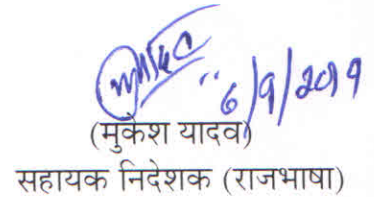 6/9/2019
(मुकेश यादव)
सहायक निदेशक (राजभाषा)